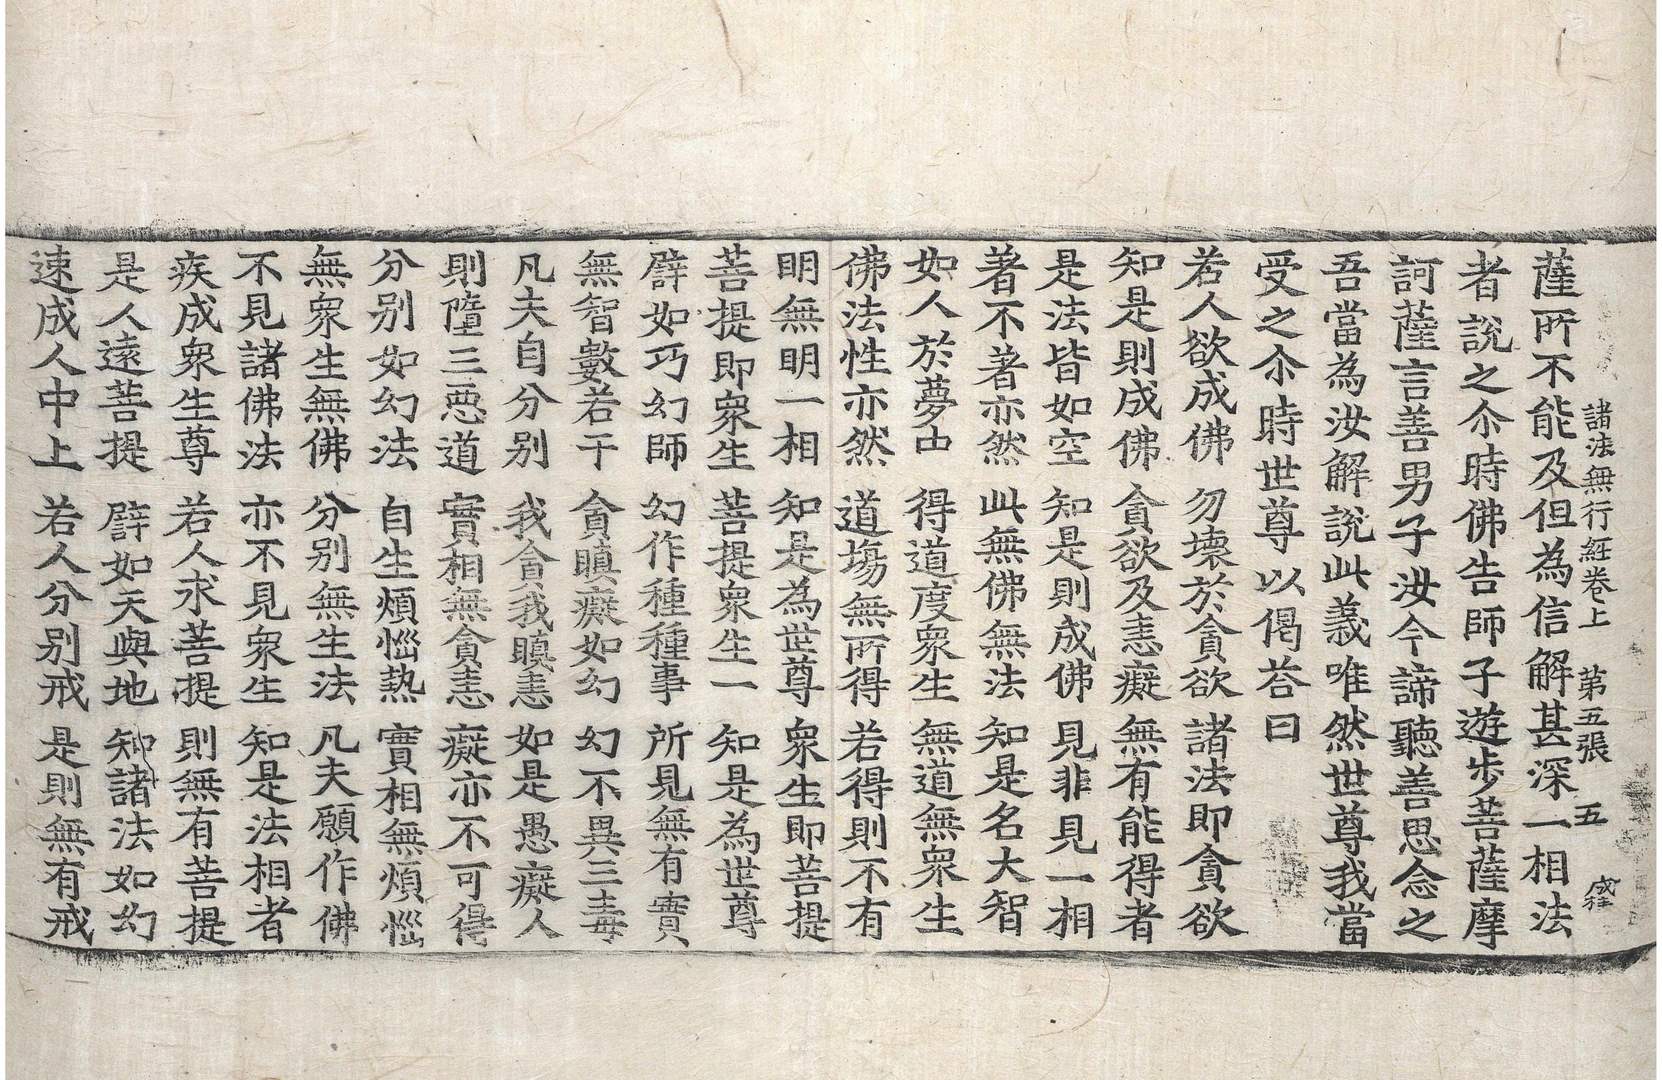 諸法無行経卷上　第五張　五
薩所不能及但為信解甚深一相法
者說之尒時佛告師子遊步菩薩摩
訶薩言善男子汝今諦聽善思念之
吾當為汝解說此義唯然世尊我當
受之尒時世尊以偈荅曰
若人欲成佛　勿壞於貪欲　諸法即貪欲
知是則成佛　貪欲及恚癡　無有能得者
是法皆如空　知是則成佛　見非見一相
著不著亦然　此無佛無法　知是名大智
如人於夢中　得道度衆生　無道無衆生
佛法性亦然　道場無所得　若得則不有
明無明一相　知是為世尊　衆生即菩提
菩提即衆生　菩提衆生一　知是為世尊
譬如巧幻師　幻作種種事　所見無有實
無智數若干　貪瞋癡如幻　幻不異三毒
凡夫自分別　我貪我瞋恚　如是愚癡人
則墮三惡道　實相無貪恚　癡亦不可得
分別如幻法　自生煩惱熱　實相無煩惱
無衆生無佛　分別無生法　凡夫願作佛
不見諸佛法　亦不見衆生　知是法相者
疾成衆生尊　若人求菩提　則無有菩提
是人遠菩提　譬如天與地　知諸法如幻
速成人中上　若人分別戒　是則無有戒